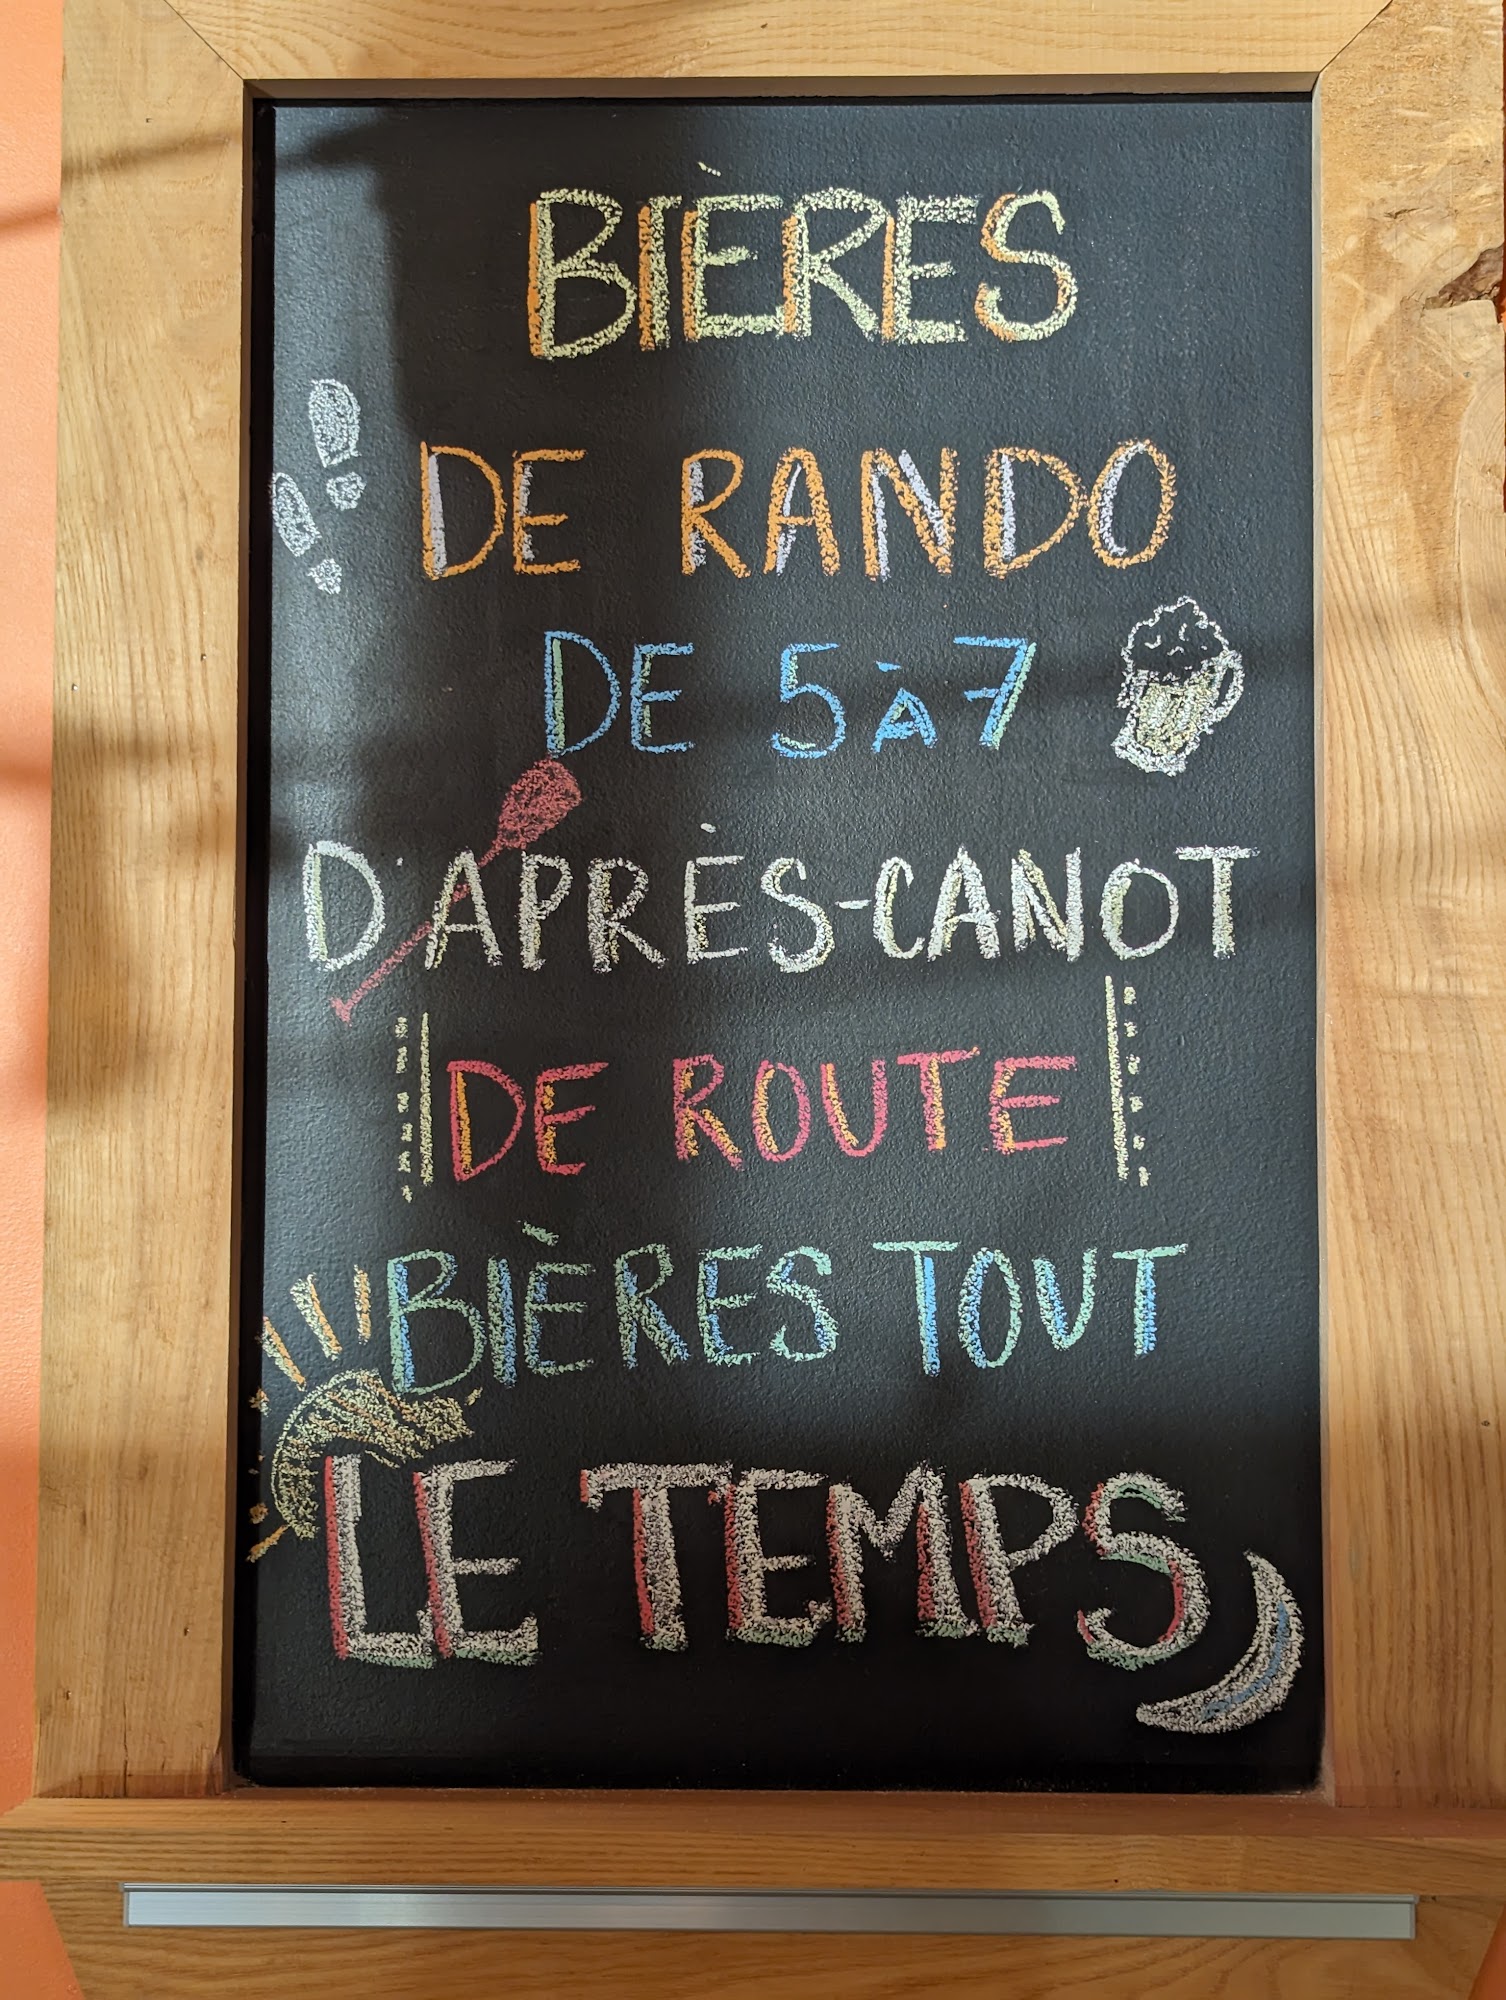 BIÈRES
DE RANDO
DE 5 À 7
D'APRÈS-CANOT
DE ROUTE
BIÈRES TOUT
LE TEMPS